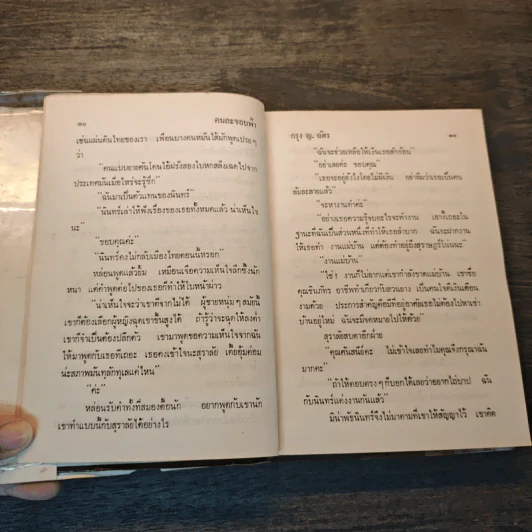 ๑๒
คนละขอบฟ้า
เช่นแผ่นดินไทยของเรา เพื่อนบางคนหมั่นไส้มักพูดเปรยๆ
ว่า
"คนแบบอายดันโดนไอ้ฝรั่งสองใบหกสลึงเฉดไปจาก
ประเทศมันเมื่อไหร่จะรู้ซึก"
"ฉันมาเป็นตัวแทนของนันทร์"
"นันทร์เล่าให้ฟังเรื่องของเธอทั้งหมดแล้ว น่าเห็นใจ
นะ"
"ขอบคุณค่ะ"
"นันทร์คงไม่กลับเมืองไทยตอนนี้หรอก"
หล่อนพูดแล้วยิ้ม เหมือนเจือความเห็นใจลึกซึ้งนัก
หนา แต่คำพูดต่อไปของเธอก็ทำให้ใบหน้าผ่าว
"น่าเห็นใจจะว่าเขาก็จากไม่ได้ ผู้ชายหนุ่มๆ สมัยนี้
เขาก็ต้องเลือกผู้หญิงฉุดเขาขึ้นสูงได้ ถ้ารู้ว่าจะฉุดให้ลงต่ำ
เขาก็จำเป็นต้องปลีกตัว เขามาพูดขอความเห็นใจจากฉัน
ให้มาพูดกับเธอที่เถอะ เธอคงเข้าใจนะสุราลัย เดี๋ยอุ้มค่อม
น่ะสภาพมันทุลักทุเลแค่ไหน"
"ค่ะ"
หล่อนรับคำทั้งที่สมองตื้อนัก อยากพูดกับเขานัก
เขาทำแบบนี้กับสุราลัยได้อย่างไร
กรุง ญ. ฉัตร
๑๓
"ฉันจะช่วยเหลือให้เงินเธอสักก้อน"
"อย่าเลยค่ะ ขอบคุณ"
"เธอจะอยู่ยังไงโดยไม่มีเงิน อย่าลืมว่าเธอเป็นคน
ลับละลายแล้ว"
"จะหางานทำค่ะ"
"อย่างเธอความรู้จบอะไรจะทำงาน เอางี้เถอะใน
ฐานะที่ฉันเป็นส่วนหนึ่งที่ทำให้เธอลำบาก ฉันจะฝากงาน
ให้เธอทำ งานแม่บ้าน แต่ต้องทำอยู่ถึงสุราษฎร์โน่นนะ"
"งานแม่บ้าน"
"ใช่! งานก็ไม่ยากแต่เขากำลังขาดแม่บ้าน เขาชื่อ
คุณชินภัทร อาชีพทำเกี่ยวกับสวนยาง เป็นคนใจดีเงินเดือน
งามด้วย ประการสำคัญคือมีที่อยู่อาศัยเธอไม่ต้องไปหาเช่า
บ้านอยู่ใหม่ ฉันจะมีจดหมายไปให้ด้วย"
สุราลัยสบตาอีกฝ่าย
"คุณดันสนีย์คะ ไม่เข้าใจเลยทำไมคุณจึงกรุณาฉัน
มากคะ"
"ถ้าให้ตอบตรงๆ ก็บอกได้เลยว่าอยากไถ่บาป ฉัน
กับนันทร์แต่งงานกันแล้ว"
มิน่าพัชนันทร์จึงไม่มาตามที่เขาให้สัญญาไว้ เขาคิด